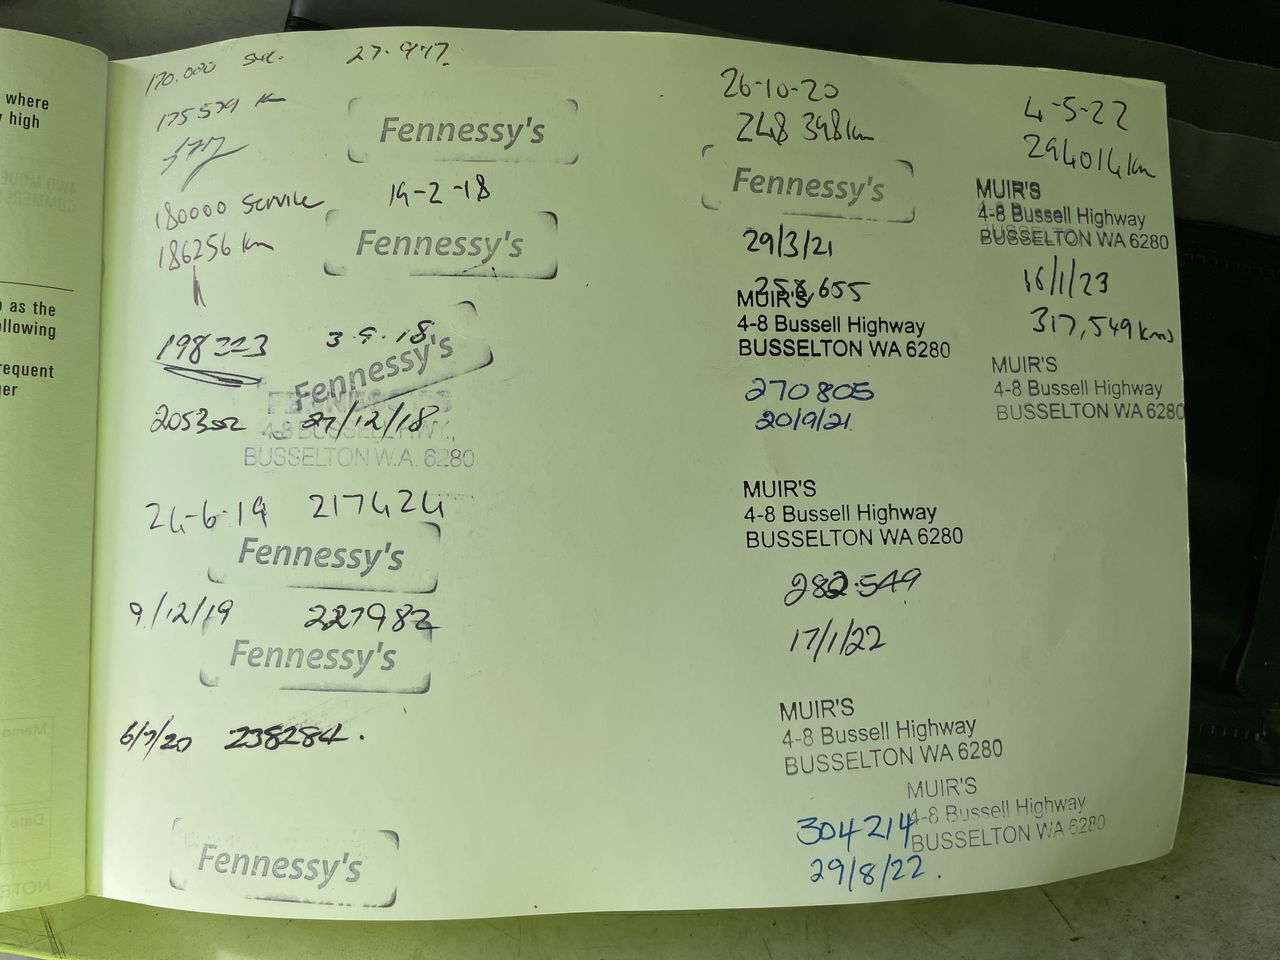 where
high
as the
llowing
requent
ger
170.000
175579 K
180000 Service
186256 km
Fennessy's
19-2-18
Fennessy's
198223
3.9.18.
Fennessy's
205352
27/12/18
4-8 BUSSELL HWY.,
BUSSELTON W.A. 6280
24-6-19 217424
Fennessy's
9/12/19 227982
Fennessy's
6/7/20 238284.
Fennessy's
26-10-20
248 398 km
Fennessy's
29/3/21
258,655
MUIR'S
4-8 Bussell Highway
BUSSELTON WA 6280
270805
20/9/21
MUIR'S
4-8 Bussell Highway
BUSSELTON WA 6280
282.549
17/1/22
MUIR'S
4-8 Bussell Highway
BUSSELTON WA 6280
MUIR'S
4-8 Bussell Highway
BUSSELTON WA 6280
304214
29/8/22.
4-5-22
294014 km
MUIR'S
4-8 Bussell Highway
BUSSELTON WA 6280
16/1/23
317,549 kms
MUIR'S
4-8 Bussell Highway
BUSSELTON WA 6280